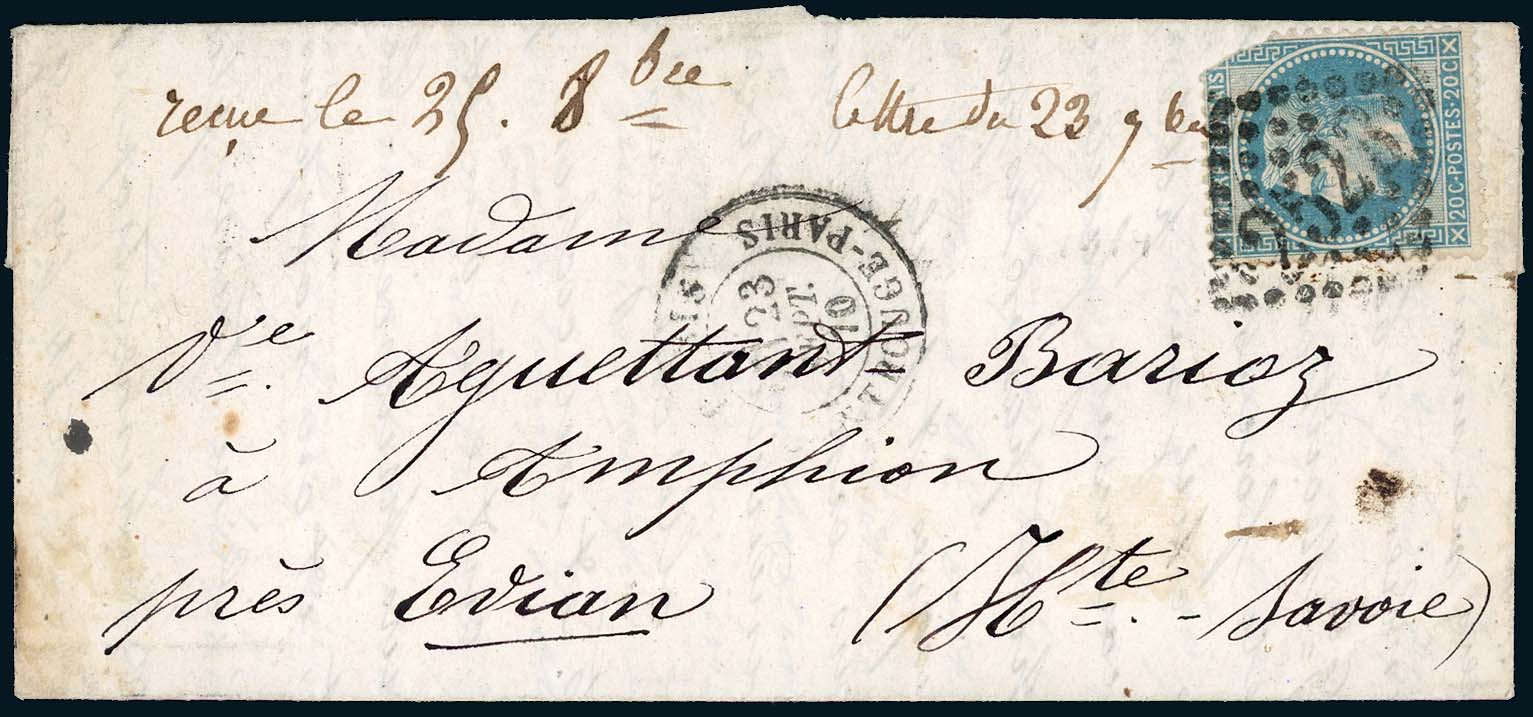 reçue le 25. 8bre lettre du 23 7bre
Madame
Vve Aguettant Barioz
à Amphion
près Evian (Hte. - Savoie)
MONTROUGE-PARIS
23
SEPT.
70
20C·POSTES·20C